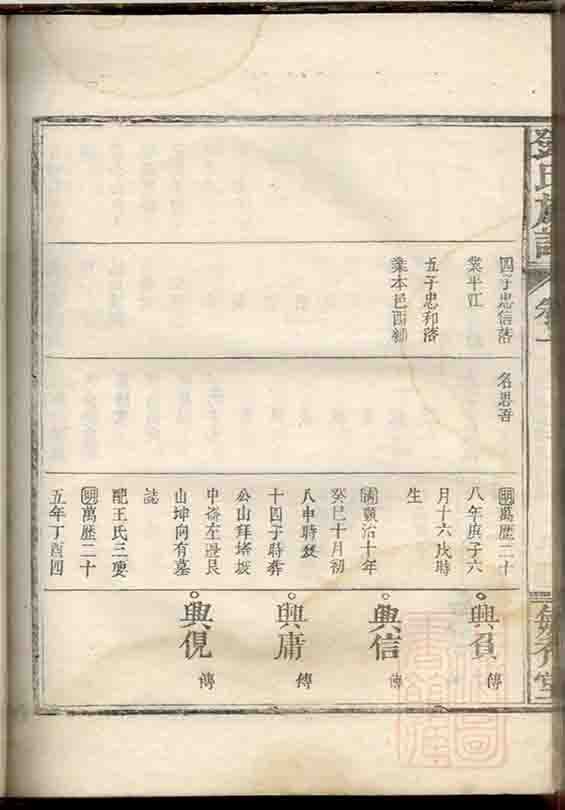 氏族譜
四子忠信落
業平江
五子忠和落
業本邑西鄉
名思吾
明萬歷二十
八年庚子六
月十六戌時
生
清順治十年
癸巳十月初
八申時歿
十四子時葬
公山拜塔塅
中嵛左邊艮
山坤向有墓
誌
配王氏三
明萬歷二十
五年丁酉四
興負 傳
興信 傳
興庸 傳
興倪 傳